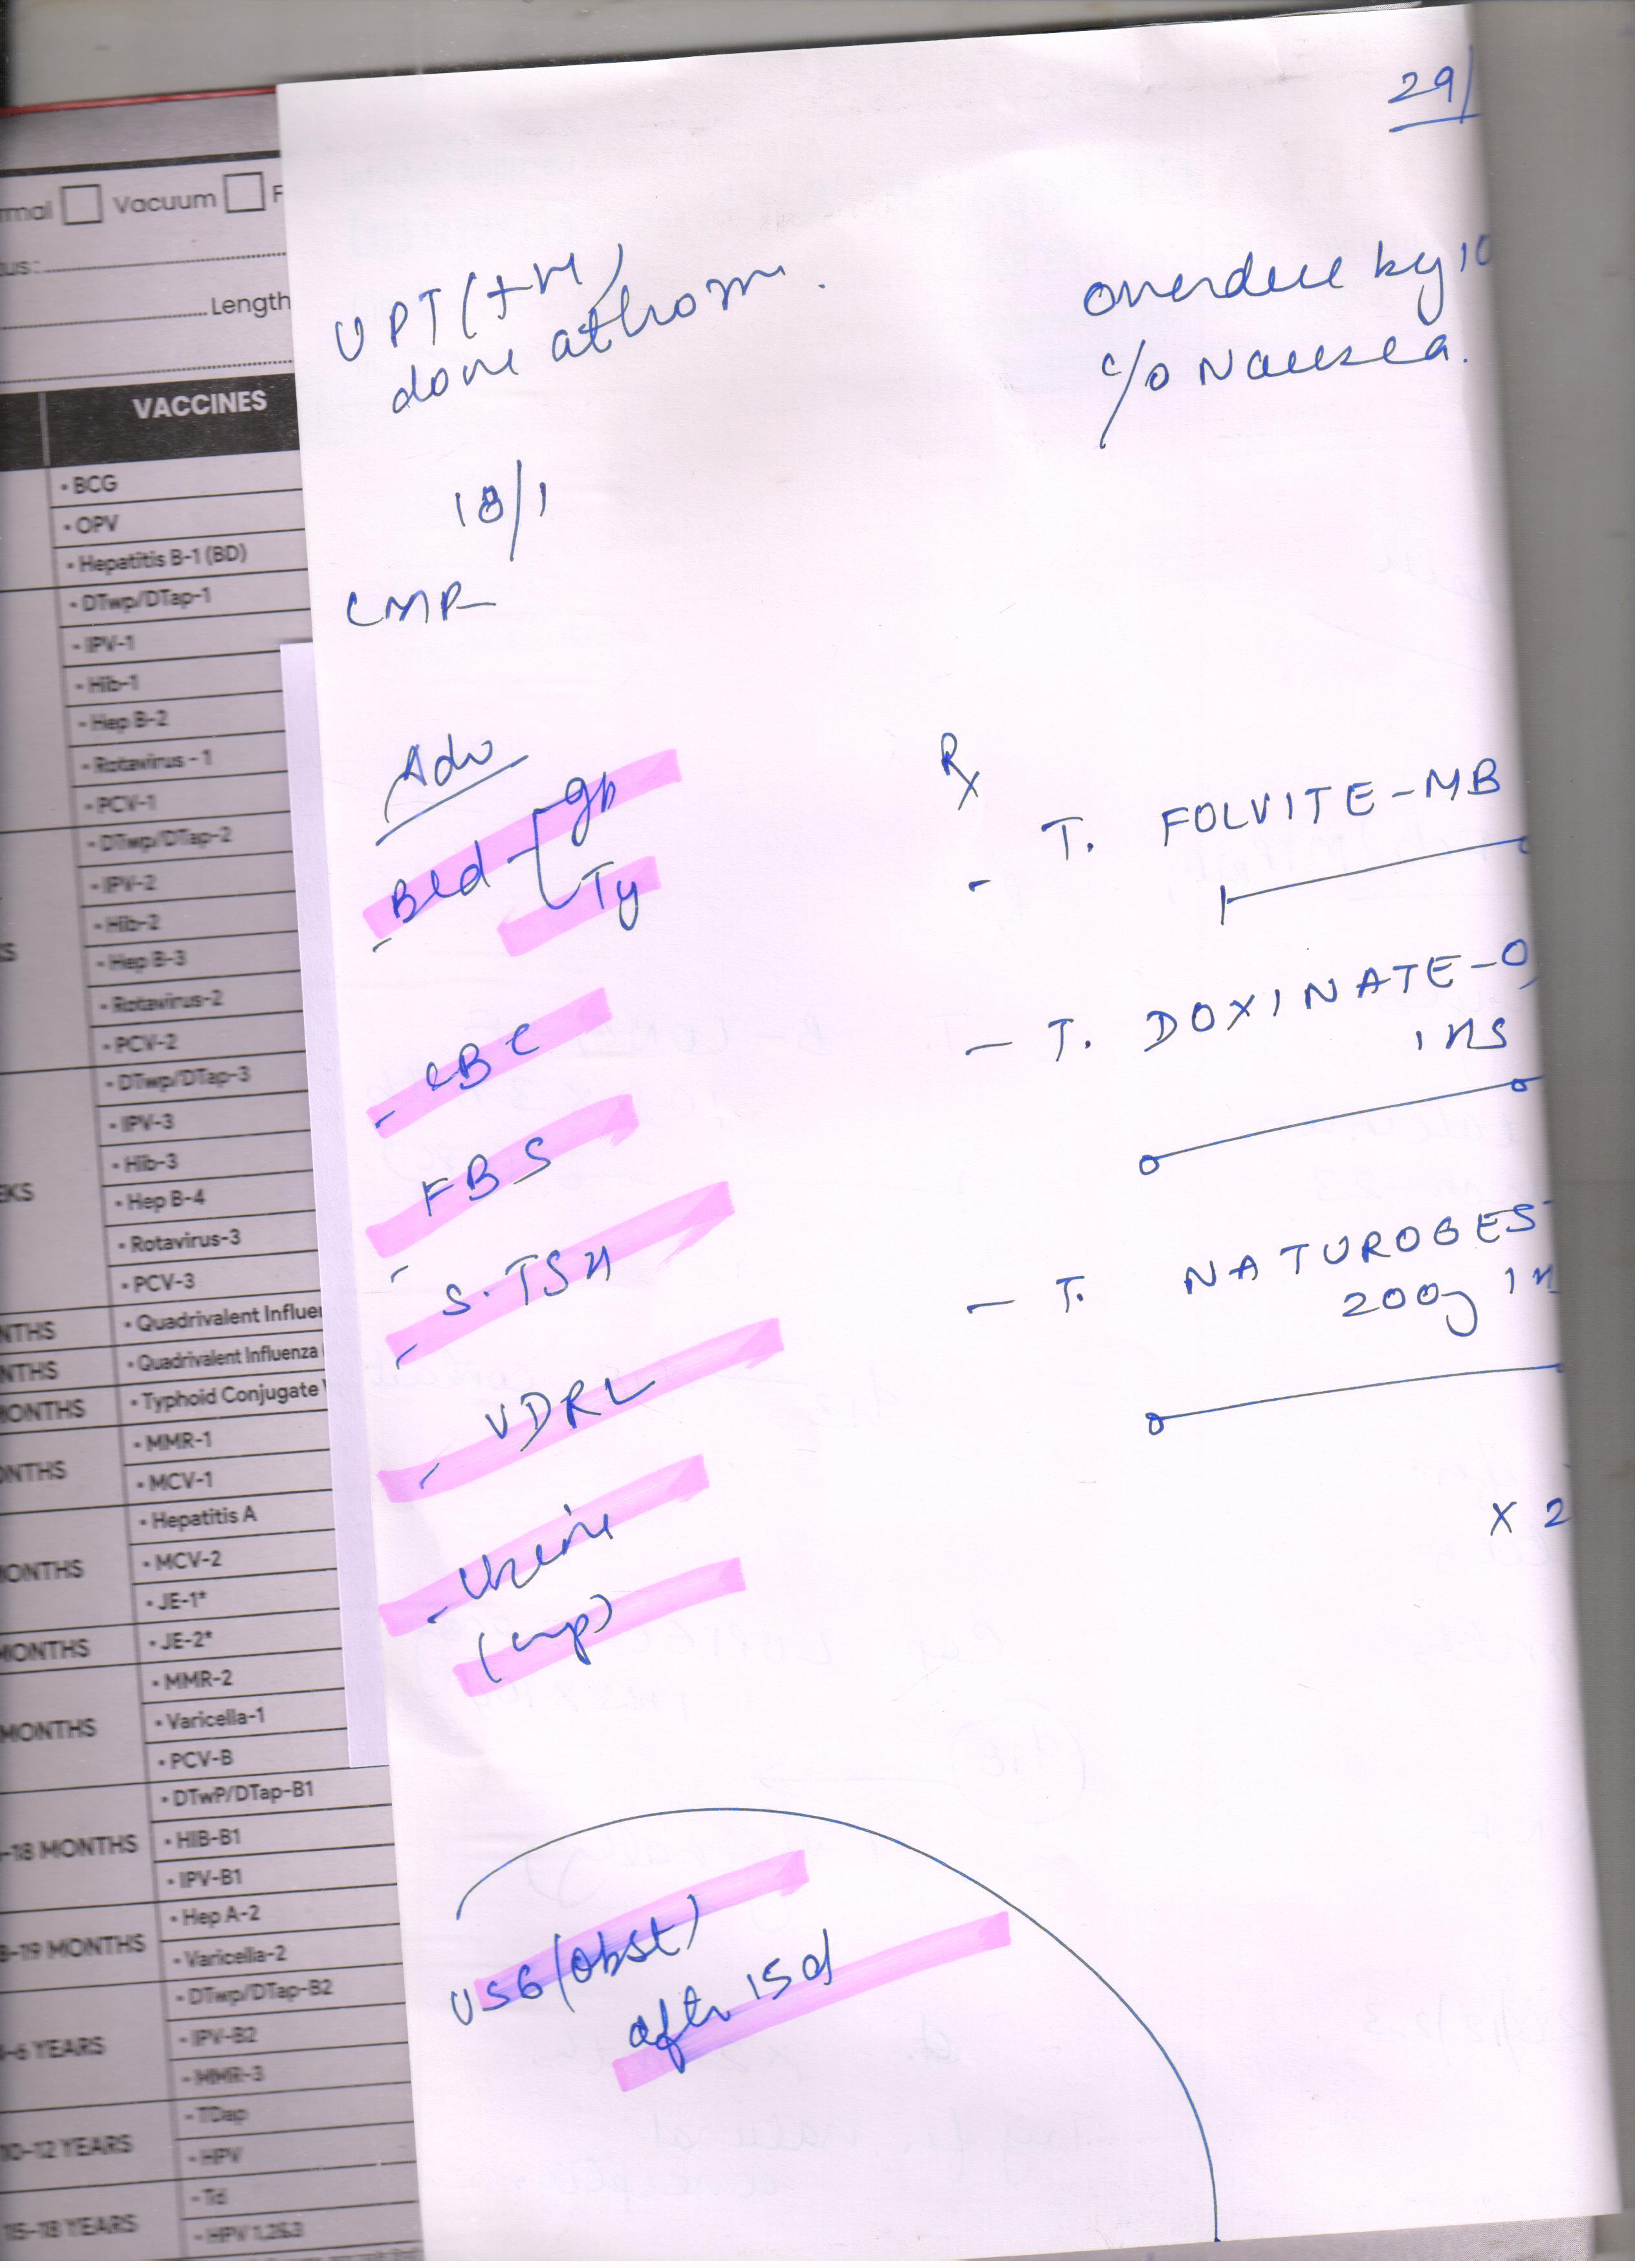 29/
UPT (+ve)
done at home.
overdue by 10
c/o Nausea.
18/1
LMP
Adv
- Bld gp
Ty
- CBC
- FBS
- S. TSH
- VDRL
- Urine
USG (Obst)
after 15d
Rx
- T. FOLVITE-MB
- T. DOXINATE-O
1 HS
- T. NATUROGES
200 1
x 2
Vacuum
Length
VACCINES
• BCG
• OPV
• Hepatitis B-1 (BD)
• DTwp/DTap-1
• IPV-1
• Hib-1
• Hep B-2
• Rotavirus - 1
• PCV-1
• DTwp/DTap-2
• IPV-2
• Hib-2
• Hep B-3
• Rotavirus-2
• PCV-2
• DTwp/DTap-3
• IPV-3
• Hib-3
• Hep B-4
• Rotavirus-3
• PCV-3
• Quadrivalent Influe
• Quadrivalent Influenza
• Typhoid Conjugate
• MMR-1
• MCV-1
• Hepatitis A
• MCV-2
• JE-1*
MONTHS • JE-2*
• MMR-2
MONTHS • Varicella-1
• PCV-B
• DTwP/DTap-B1
-18 MONTHS • HIB-B1
• IPV-B1
• Hep A-2
-19 MONTHS • Varicella-2
• DTwp/DTap-B2
-6 YEARS • IPV-B2
• MMR-3
• TDap
10-12 YEARS • HPV
• Td
15-18 YEARS • HPV 1,2&3